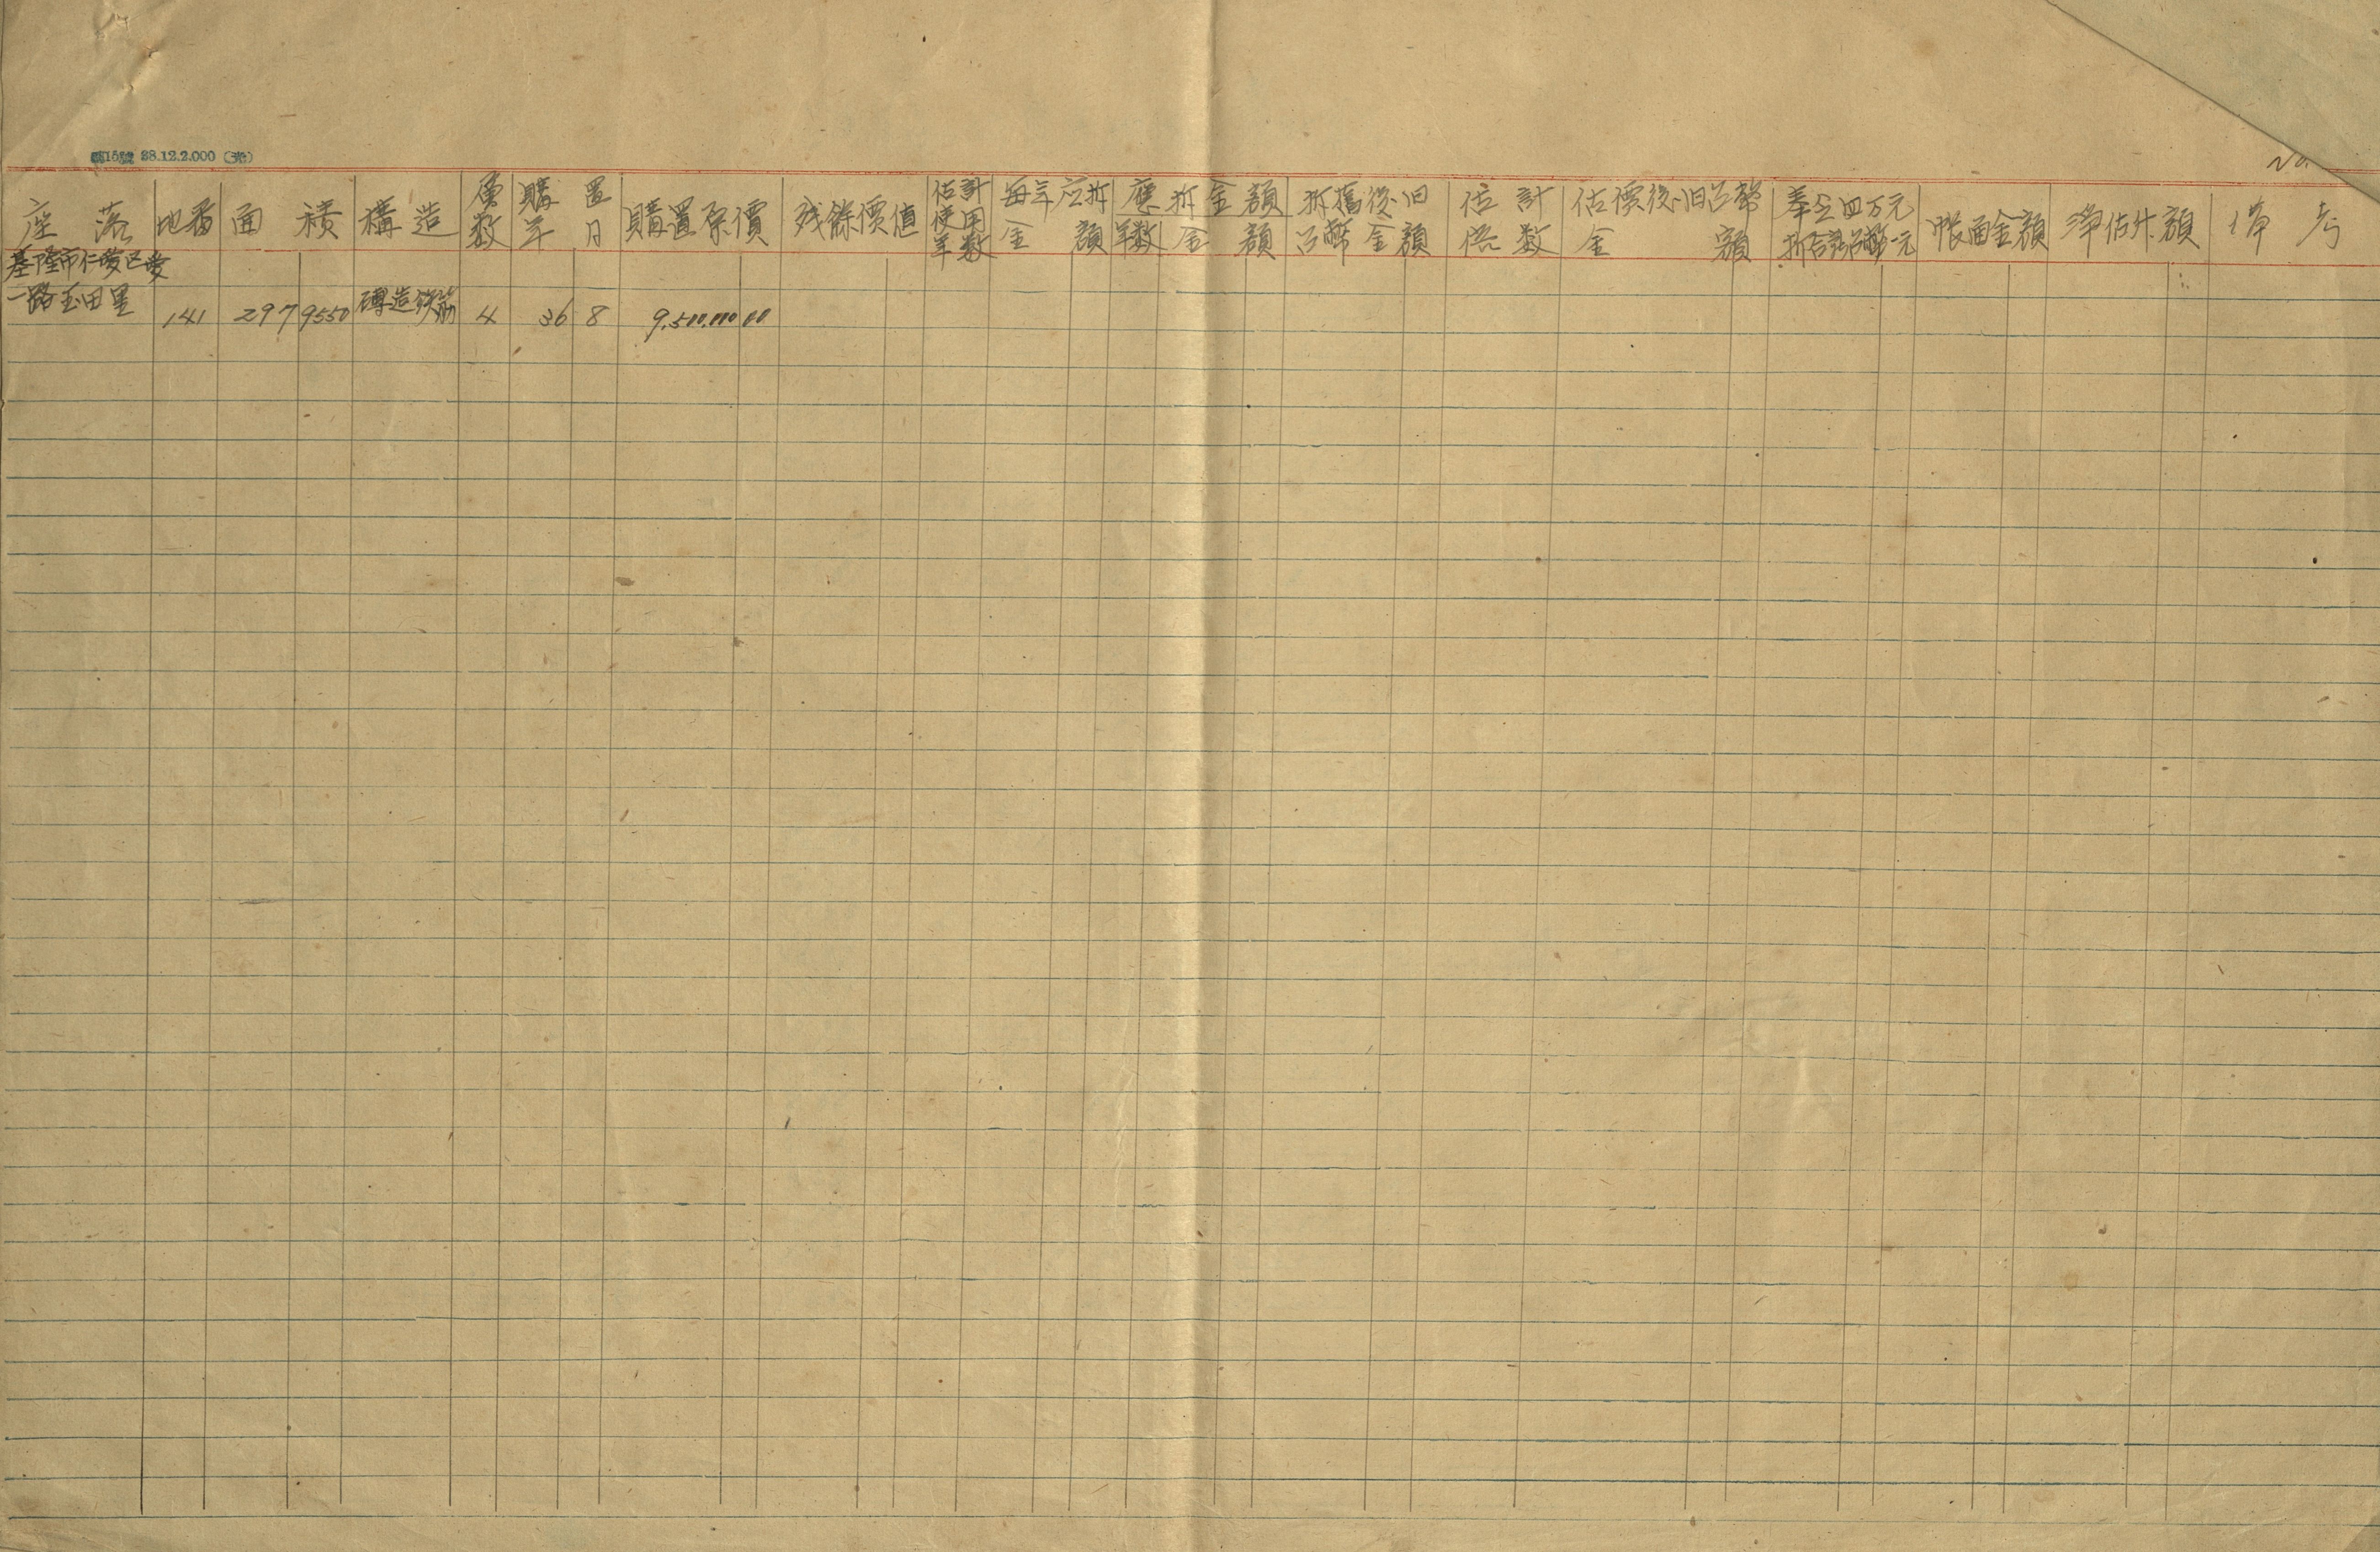 38.12.2.000
No.
座落 地番 面積 構造 層数 購置年月 購置原價 残餘價值 估計使用年数 每年应折金額 應折金額 年数 金額 折舊後旧台幣金額 估計倍数 估價後旧台幣金額 四万元 折合新台幣一元 帳面金額 淨估升額 備考
基隆市仁愛区愛
一路玉田里 141 297 9550 磚造鉄筋 4 36 8 9,500,000 00